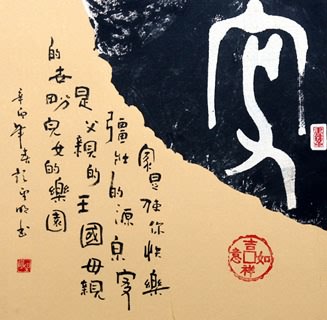 家
家是使你快樂
彊壯的源泉家
是父親的王國母親
的世界兒女的樂園
辛卯年春
書
吉祥如意